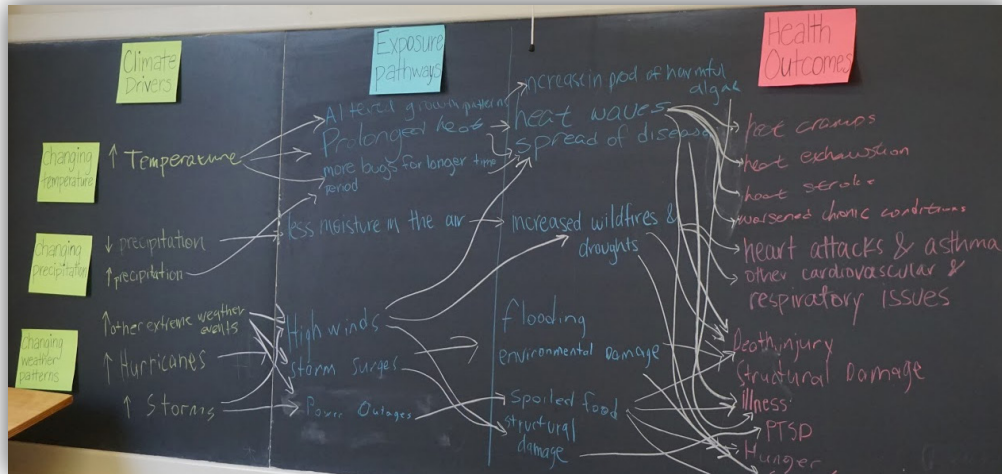 Climate
Drivers
Exposure
pathways
Health
Outcomes
changing
temperature
↑ Temperature
changing
precipitation
↓ precipitation
↑ precipitation
changing
weather
patterns
↑ other extreme weather
events
↑ Hurricanes
↑ Storms
Altered growth patterns
Prolonged heat
more bugs for longer time
period
less moisture in the air
High winds
Storm Surges
Power Outages
increase in prod of harmful
algae
heat waves
spread of disease
increased wildfires &
droughts
flooding
environmental Damage
Spoiled food
structural
damage
heat cramps
heat exhaustion
heat stroke
worsened chronic conditions
heart attacks & asthma
other cardiovascular &
respiratory issues
Death, injury
Structural Damage
illness
PTSD
Hunger